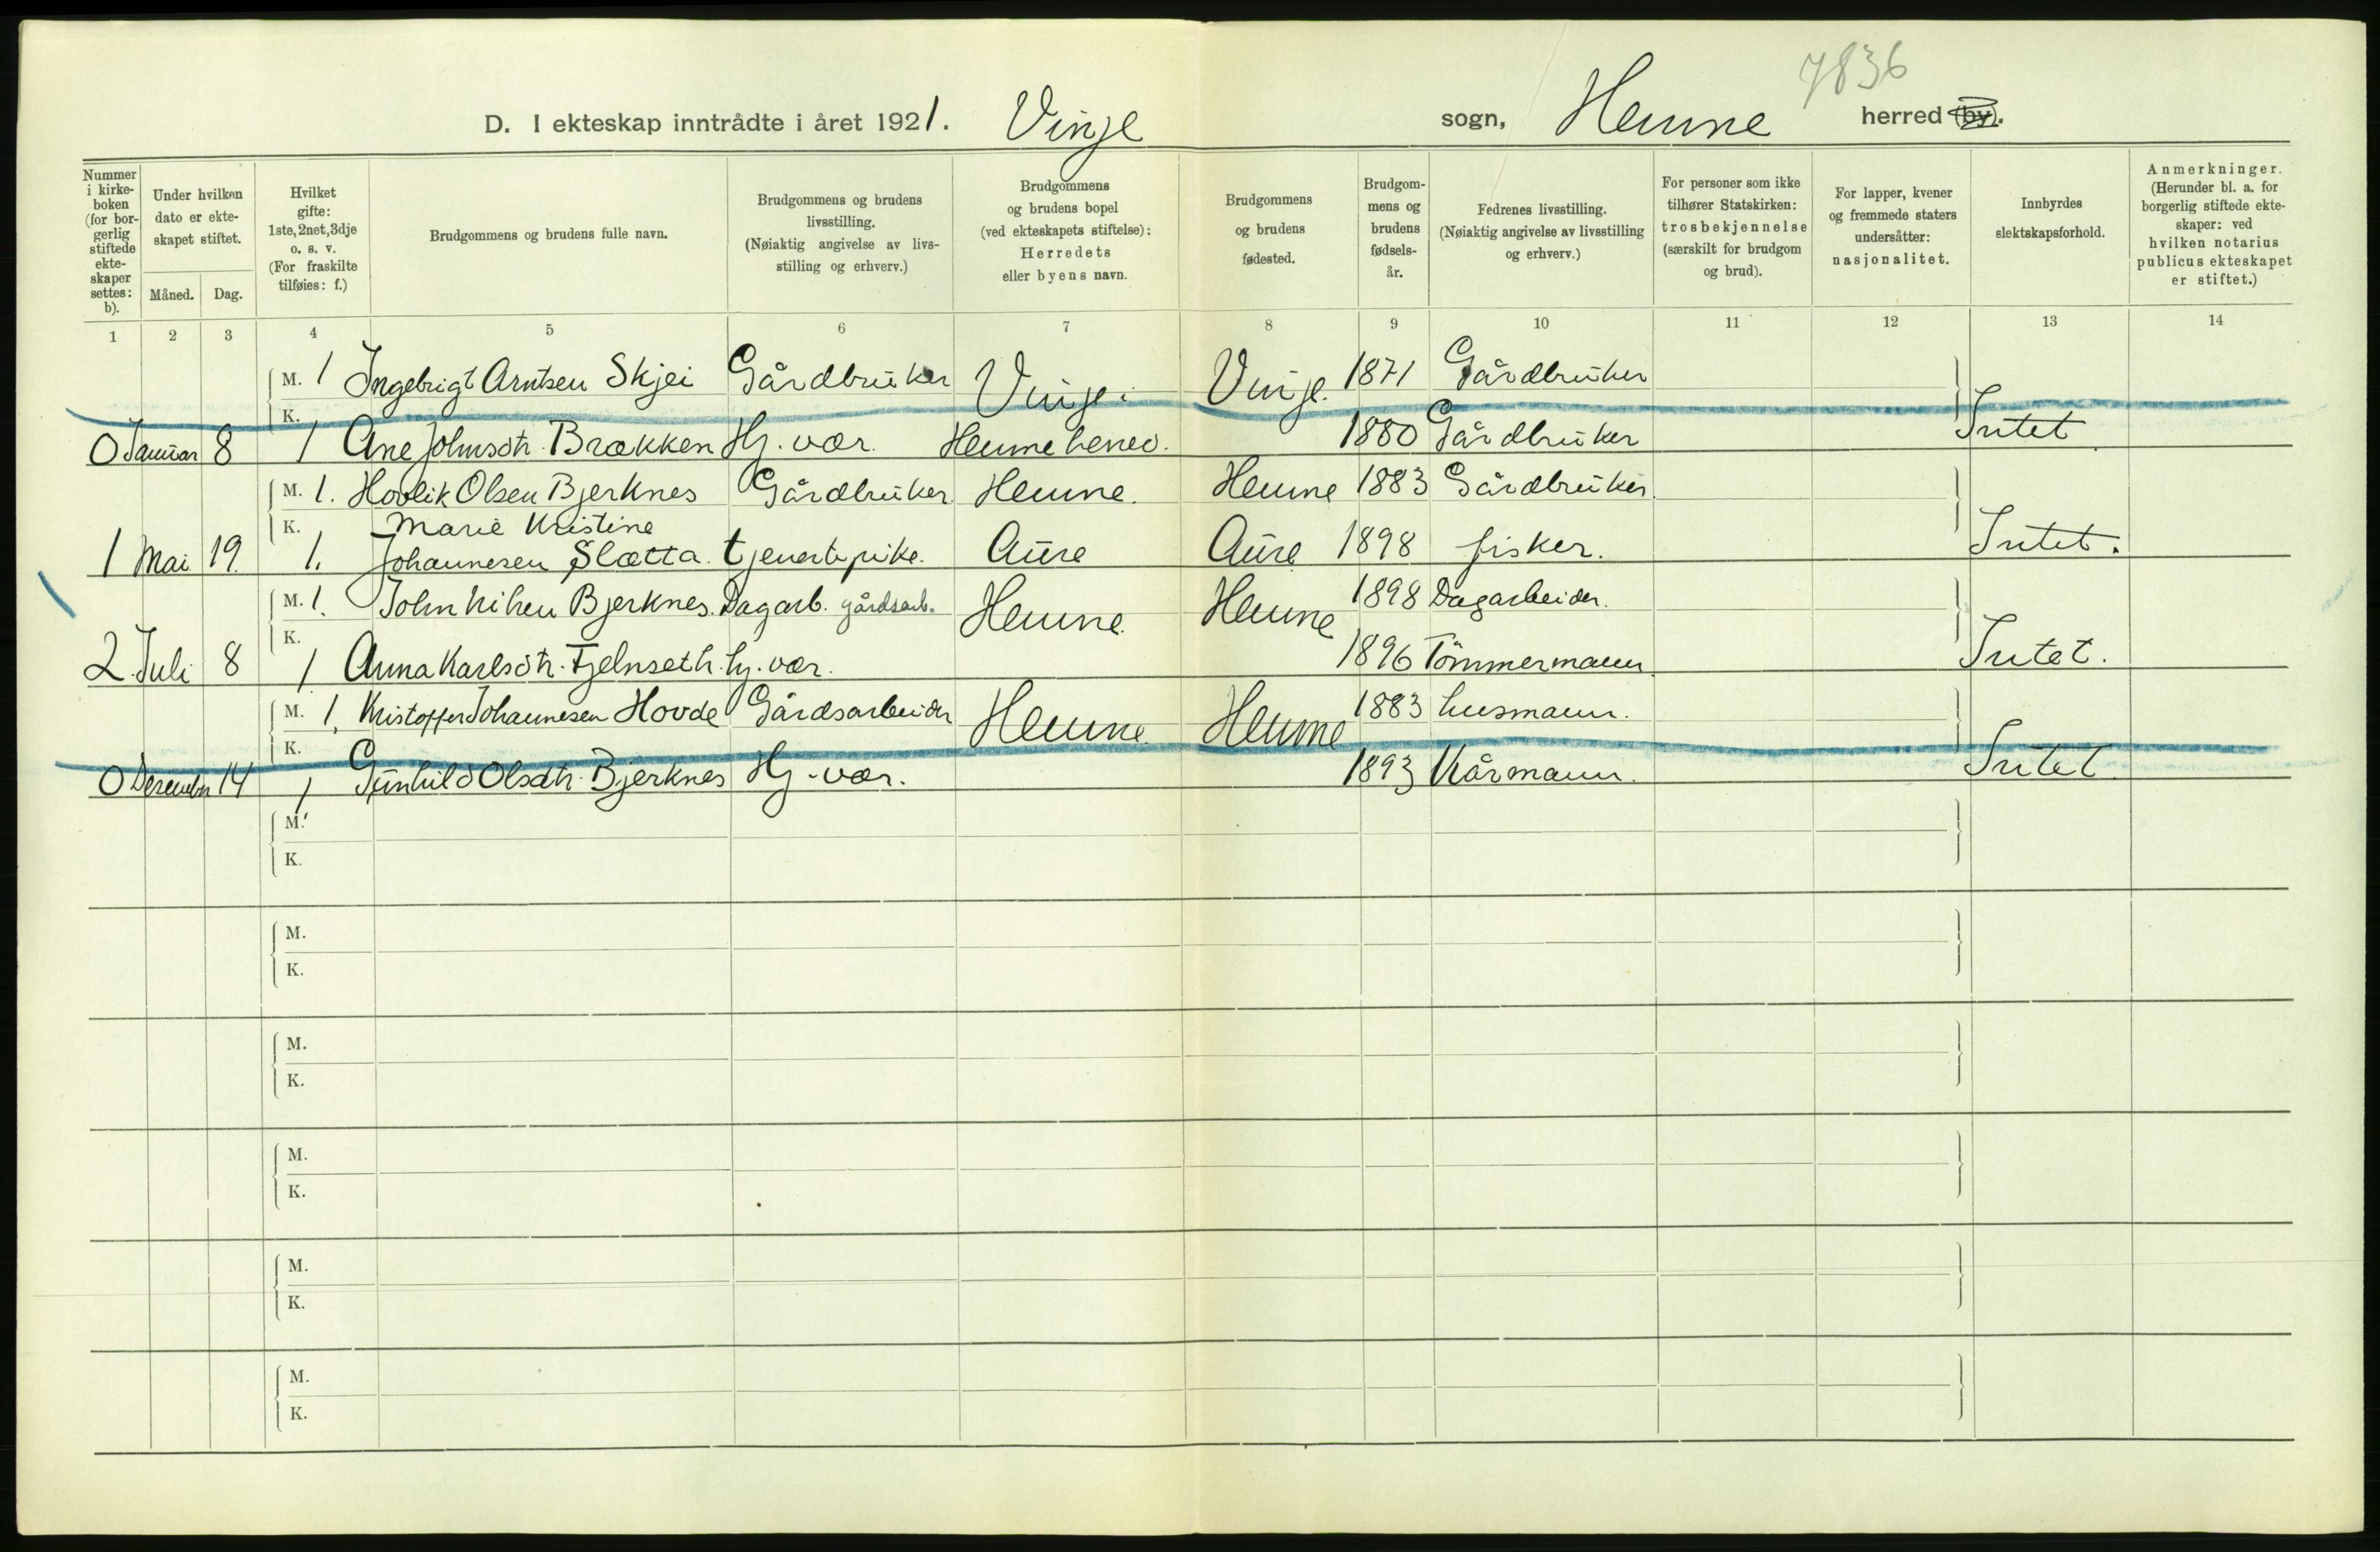 7836
D. I ekteskap inntrådte i året 1921. Vinje sogn, Hemne herred (by).
Nummer i kirke-boken (for bor-gerlig stiftede ekte-skaper settes: b).
Under hvilken dato er ekte-skapet stiftet.
Måned. Dag.
Hvilket gifte: 1ste, 2net, 3dje o. s. v. (For fraskilte tilføies: f.)
Brudgommens og brudens fulle navn.
Brudgommens og brudens livsstilling. (Nøiaktig angivelse av livs-stilling og erhverv.)
Brudgommens og brudens bopel (ved ekteskapets stiftelse): Herredets eller byens navn.
Brudgommens og brudens fødested.
Brudgom-mens og brudens fødsels-år.
Fedrenes livsstilling. (Nøiaktig angivelse av livsstilling og erhverv.)
For personer som ikke tilhører Statskirken: trosbekjennelse (særskilt for brudgom og brud).
For lapper, kvener og fremmede staters undersåtter: nasjonalitet.
Innbyrdes slektskapsforhold.
Anmerkninger. (Herunder bl. a. for borgerlig stiftede ekte-skaper: ved hvilken notarius publicus ekteskapet er stiftet.)
1 2 3 4 5 6 7 8 9 10 11 12 13 14
M. 1 Ingebrigt Arntsen Skjei Gårdbruker Vinje. Vinje. 1871 Gårdbruker
K.
0 Januar 8 1 Ane Johnsdtr. Brækken Hj. vær. Hemne herred. 1880 Gårdbruker Intet
M. 1. Hovlik Olsen Bjerknes Gårdbruker Hemne. Hemne 1883 Gårdbruker
K. Marie Kristine
1 Mai 19. 1. Johannesen Slætta. tjenestepike. Aure Aure 1898 fisker. Intet.
M. 1. John Bjerknes. Dagarb. gårdsarb. Hemne. Hemne 1898 Dagarbeider.
K.
2 Juli 8 1 Anna Karlsdtr. Fjelnseth. hj. vær. 1896 Tömmermann Intet.
M. 1. Kristoffer Johannesen Hovde Gårdsarbeider Hemne Hemne 1883 husmann.
K.
0 Desember 14 1 Gunhild Olsdtr. Bjerknes Hj. vær. 1893 Kårmann. Intet.
M.
K.
M.
K.
M.
K.
M.
K.
M.
K.
M.
K.